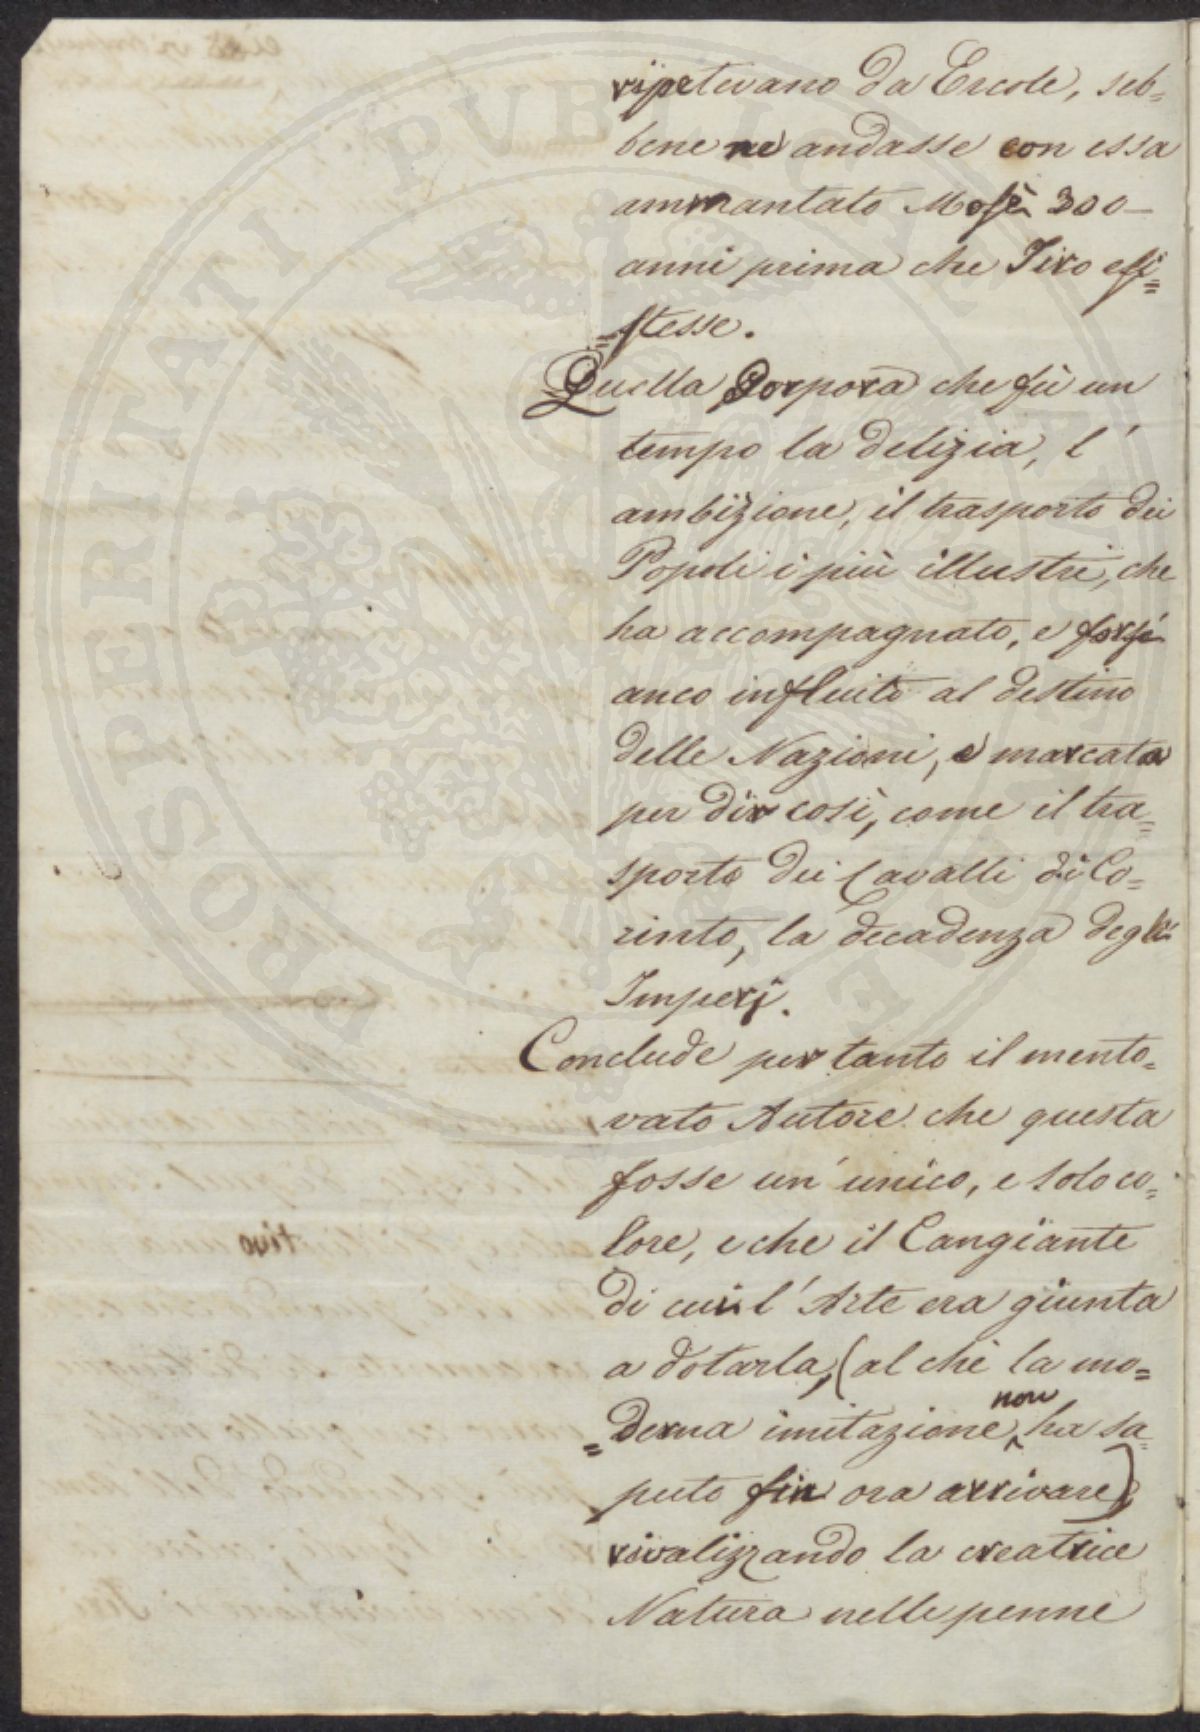 ripetevano da Ercole, seb=
bene ne andasse con essa
ammantato Mosè 300
anni prima che Tiro esi=
=stesse.
Quella Porpora che fù un
tempo la delizia, l'
ambizione, il trasporto dei
Popoli i più illustri, che
ha accompagnato, e forse
anco influito al destino
delle Nazioni, e marcata
per dir così, come il tra=
sporto dei Cavalli di Co=
rinto, la decadenza degli
Imperj.
Conclude per tanto il mento=
vato Autore che questa
fosse un' unico, e solo co=
lore, e che il Cangiante
di cui l' Arte era giunta
a dotarla, (al chè la mo=
=derna imitazione non ha sa=
puto fin ora arrivare)
rivalizzando la creatrice
Natura nelle penne
PROSPERITATI PUBLICAE